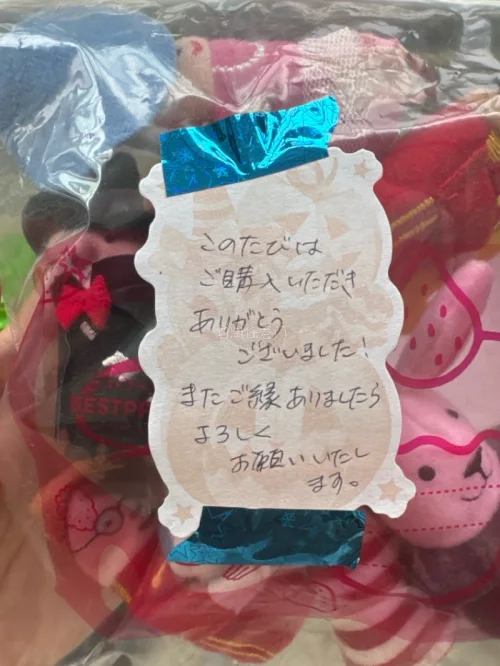 このたびは
ご購入いただき
ありがとう
ございました!
またご縁ありましたら
よろしく
お願いいたし
ます。